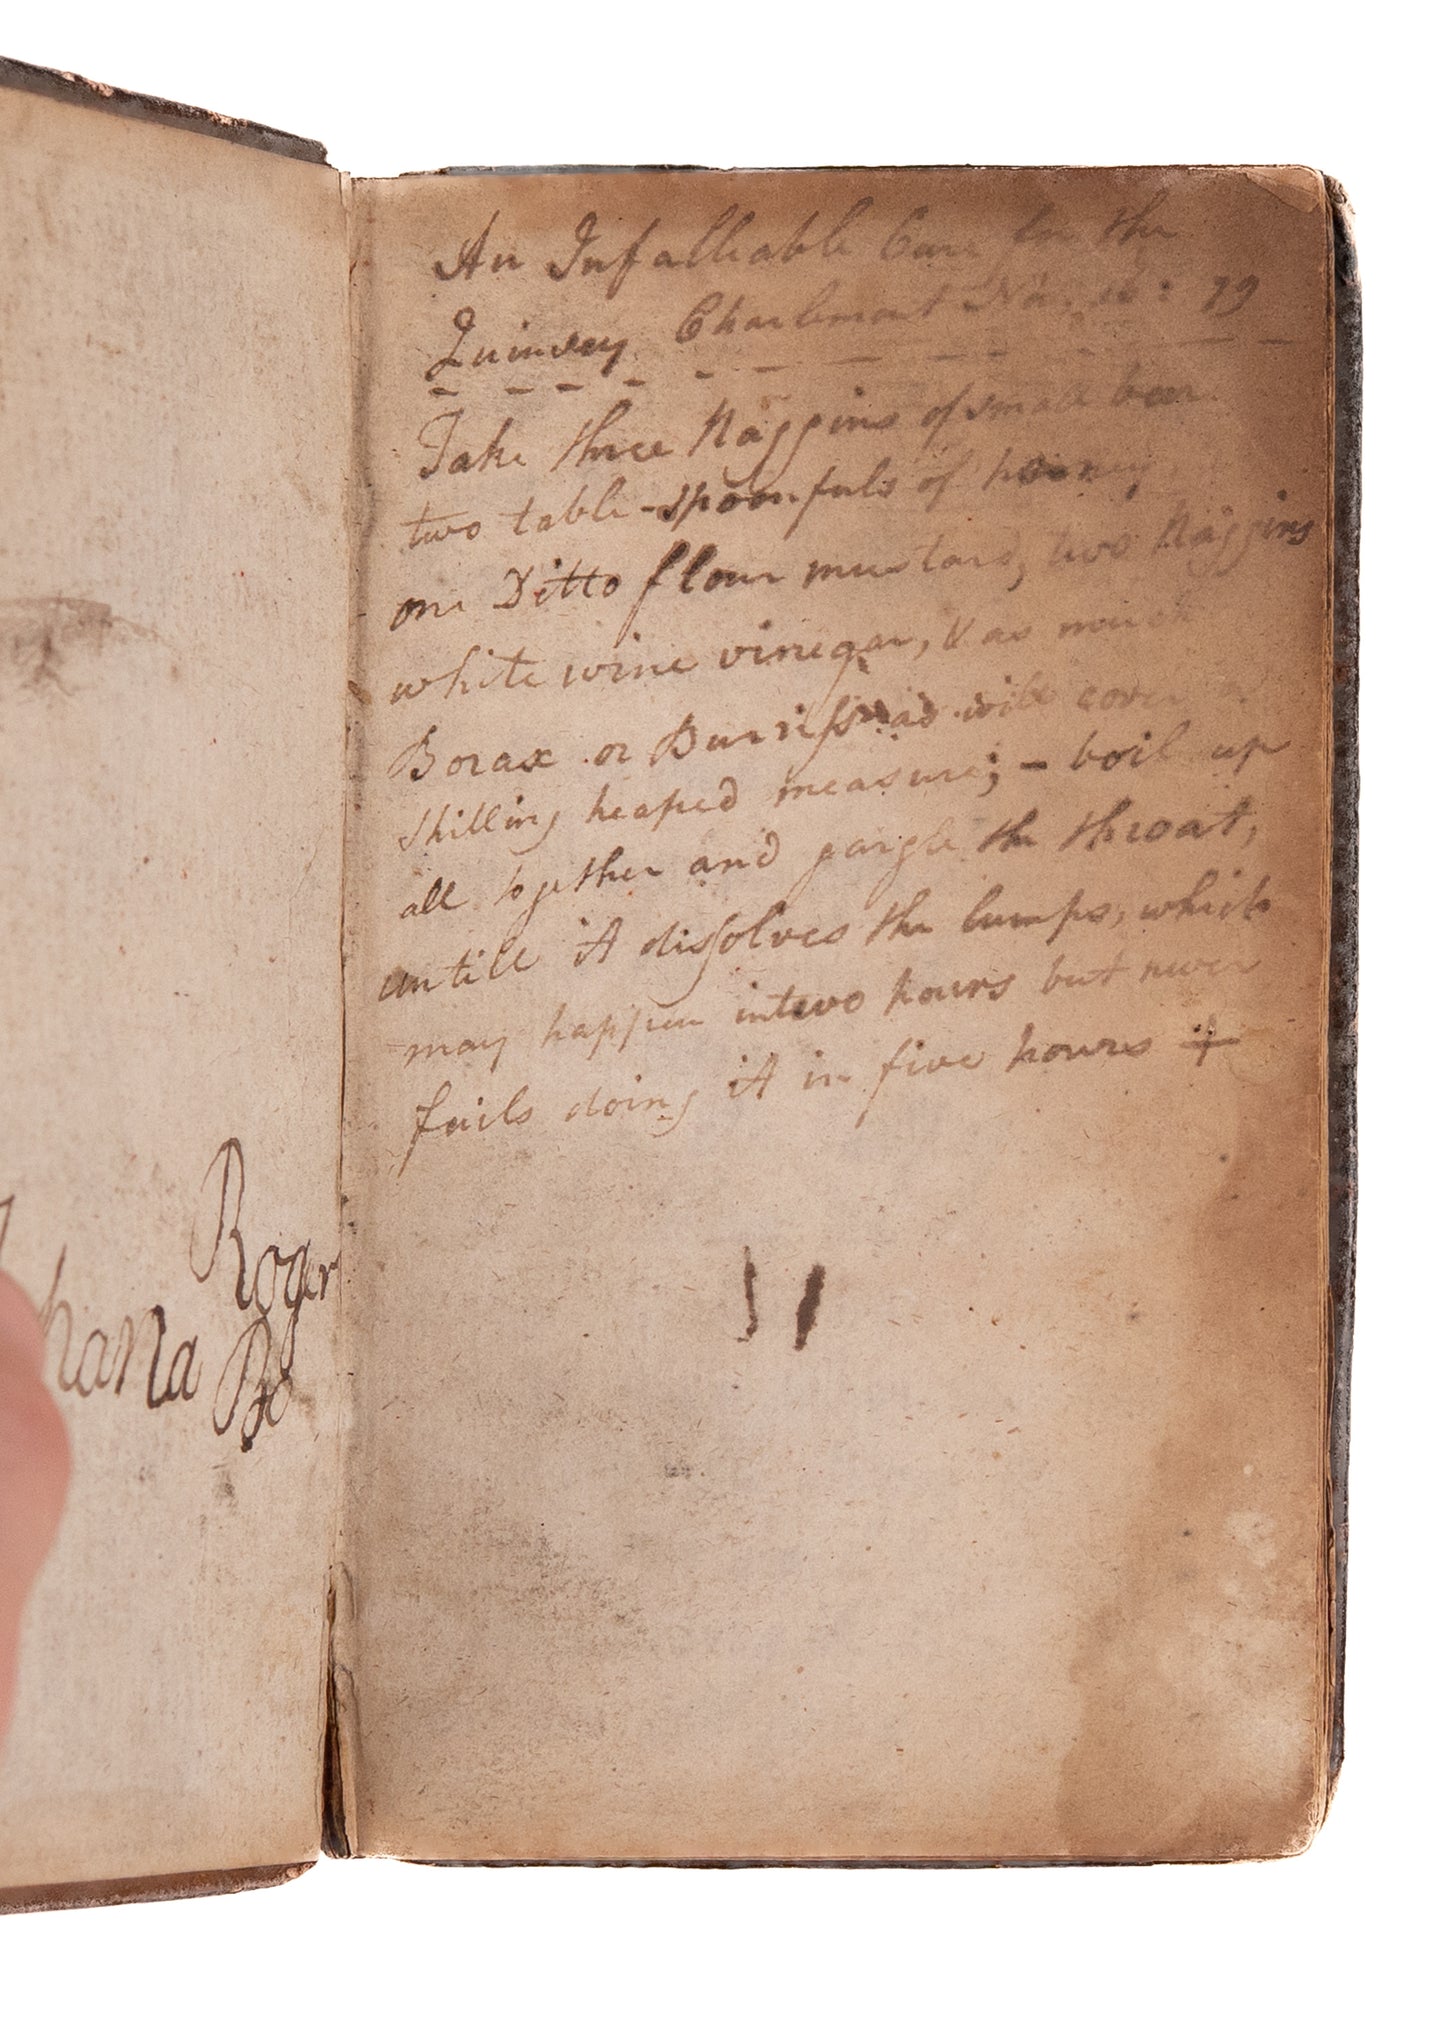 An Infalleable Cure for the
Quinsey. Charlemont 16: 79
Take three Naggins of small beer
two table-spoonfuls of honey
one Ditto flour mustard, two Naggins
white wine vinegar, & as much
Borax or as will cover a
shilling heaped measure; - boil up
all together and gargle the throat,
untill it dissolves the lumps, which
may happen in two hours but never
fails doing it in five hours
Roger
hana Bo